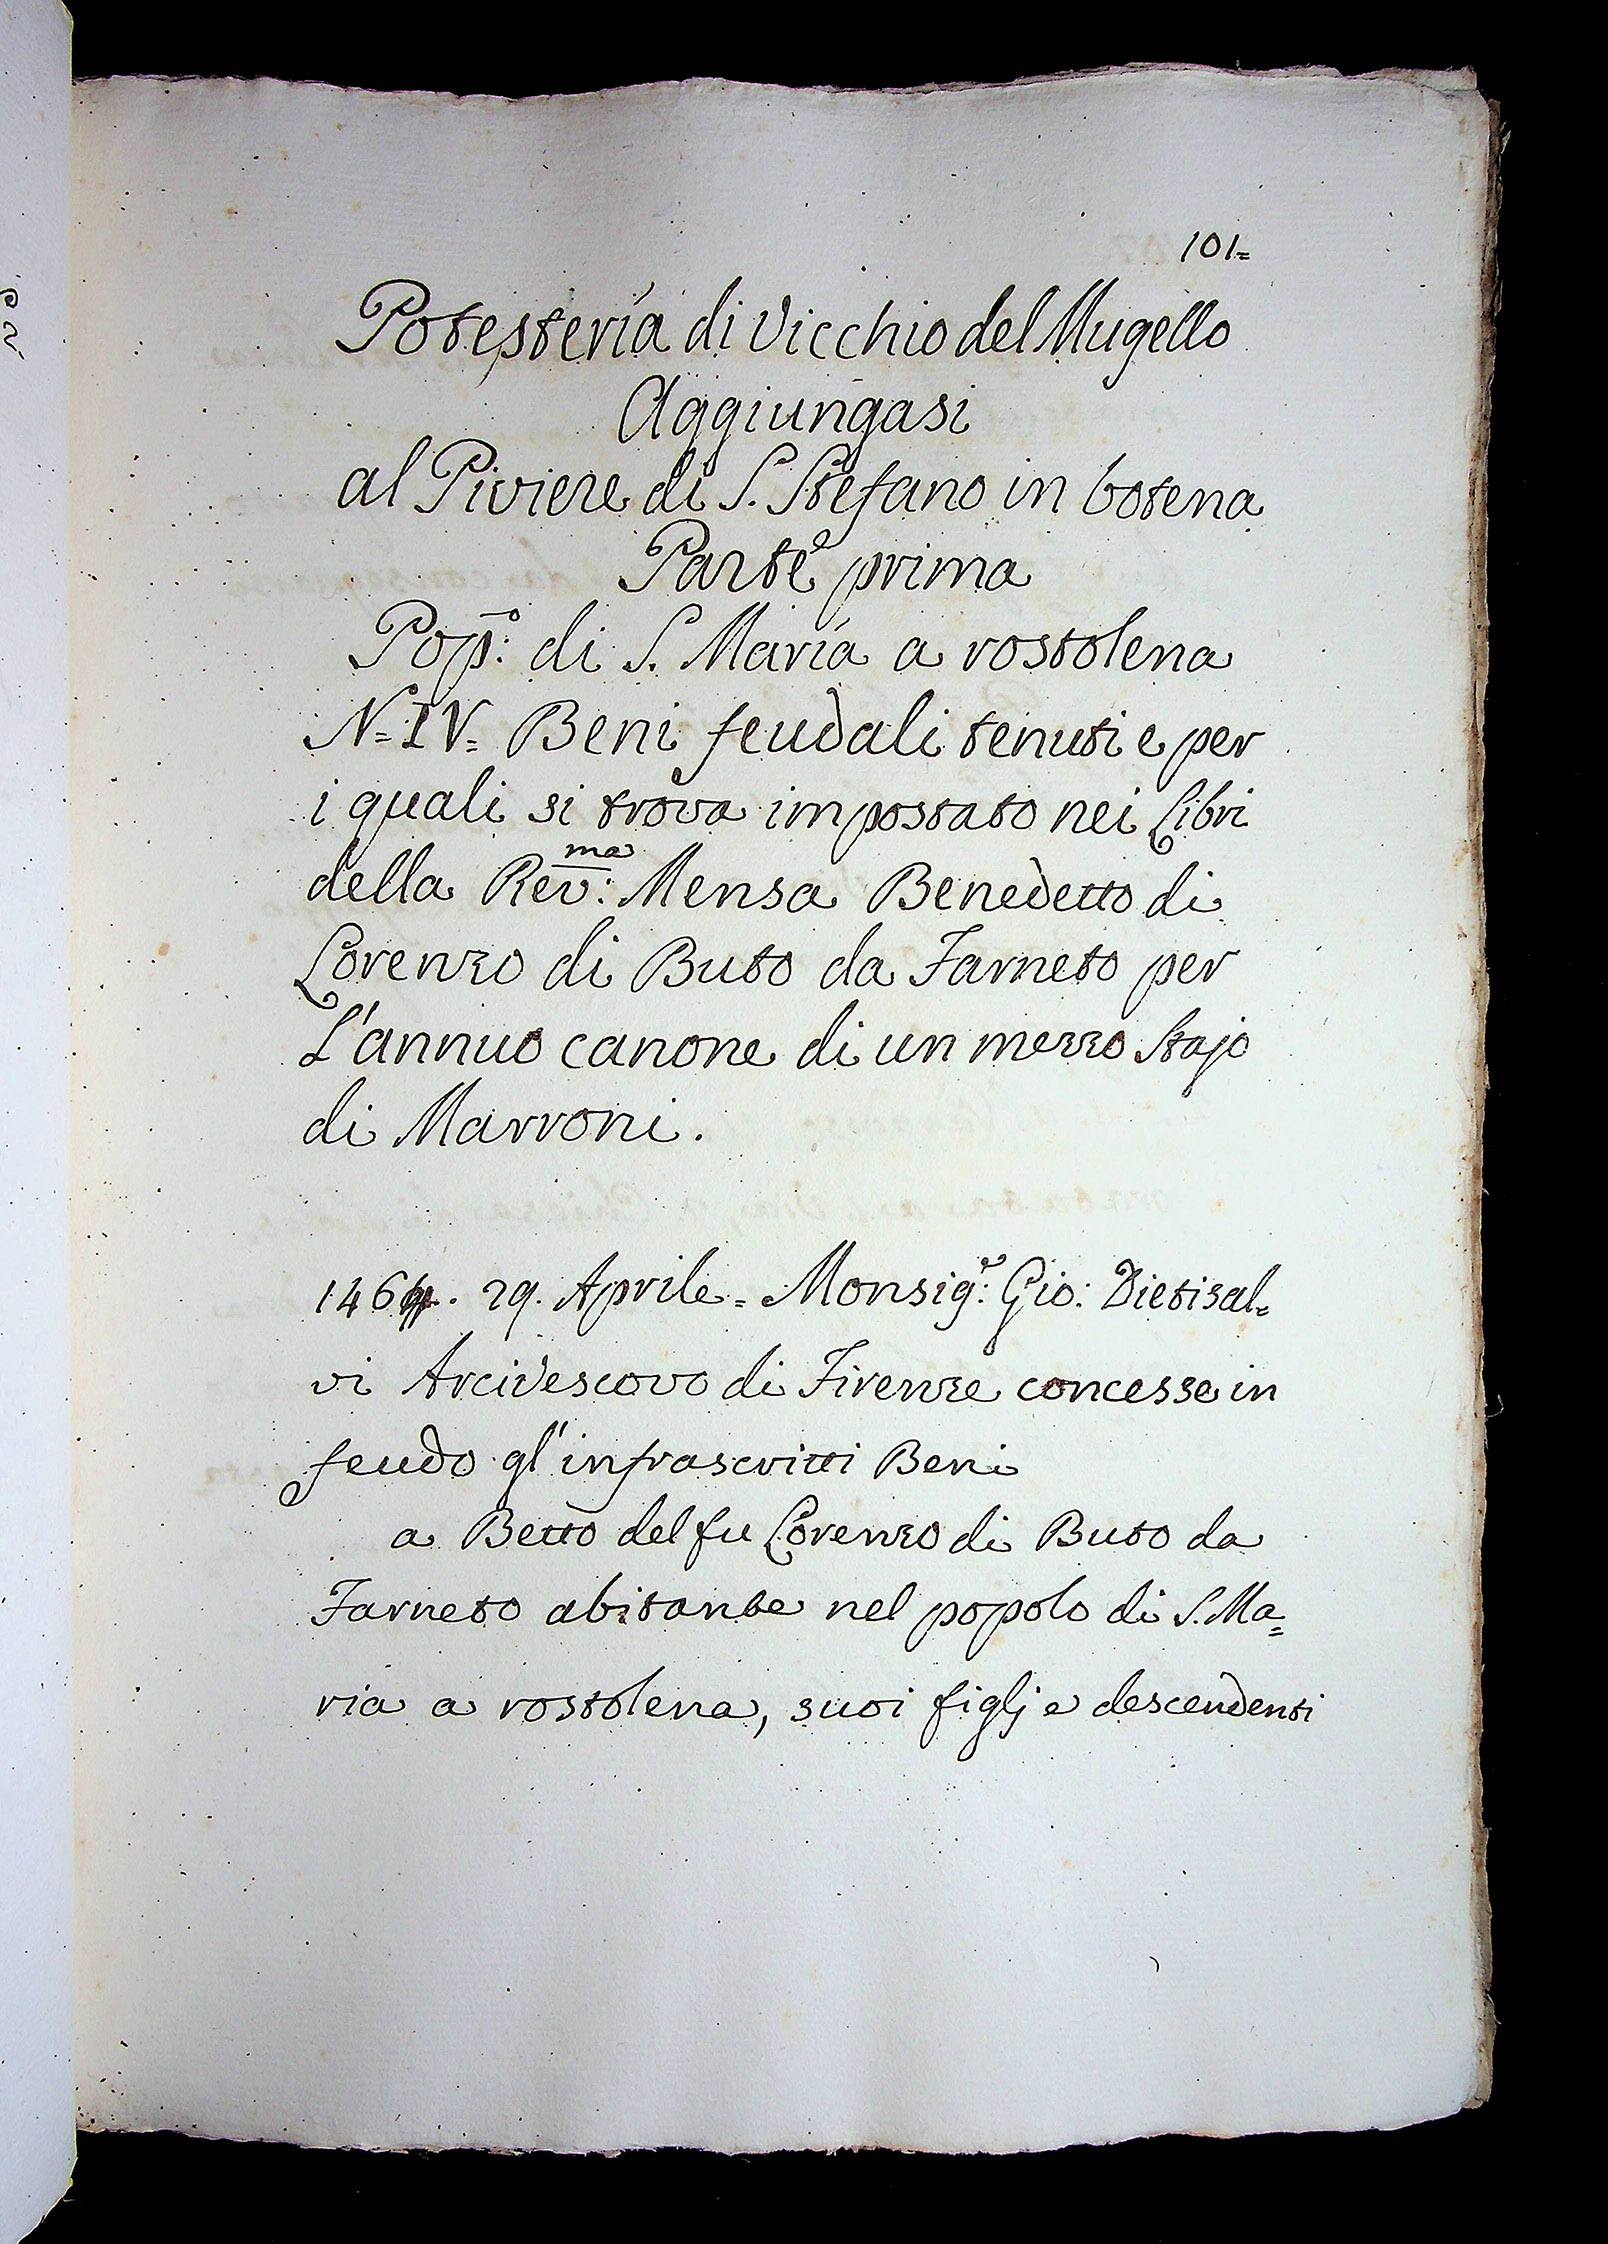 101=
Potestería di Vicchio del Mugello
Aggiungasi
al Piviere di S. Stefano in botena
Parte prima
Pop.º di S. María a rostolena
N.=IV= Beni feudali tenuti e per
i quali si trova impostato nei Libri
della Rev:ma Mensa Benedetto di
Lorenzo di Buto da Farneto per
L'annuo canone di un mezzo Stajo
di Marroni.
29. Aprile= Monsig.e: Gio: Dietisal=
vi Arcivescovo di Firenze concesse in
feudo gl'infrascritti Beni
a Betto del fu Lorenzo di Buto da
Farneto abitante nel popolo di S. Ma=
ria a rostolena, suoi figlj e descendenti